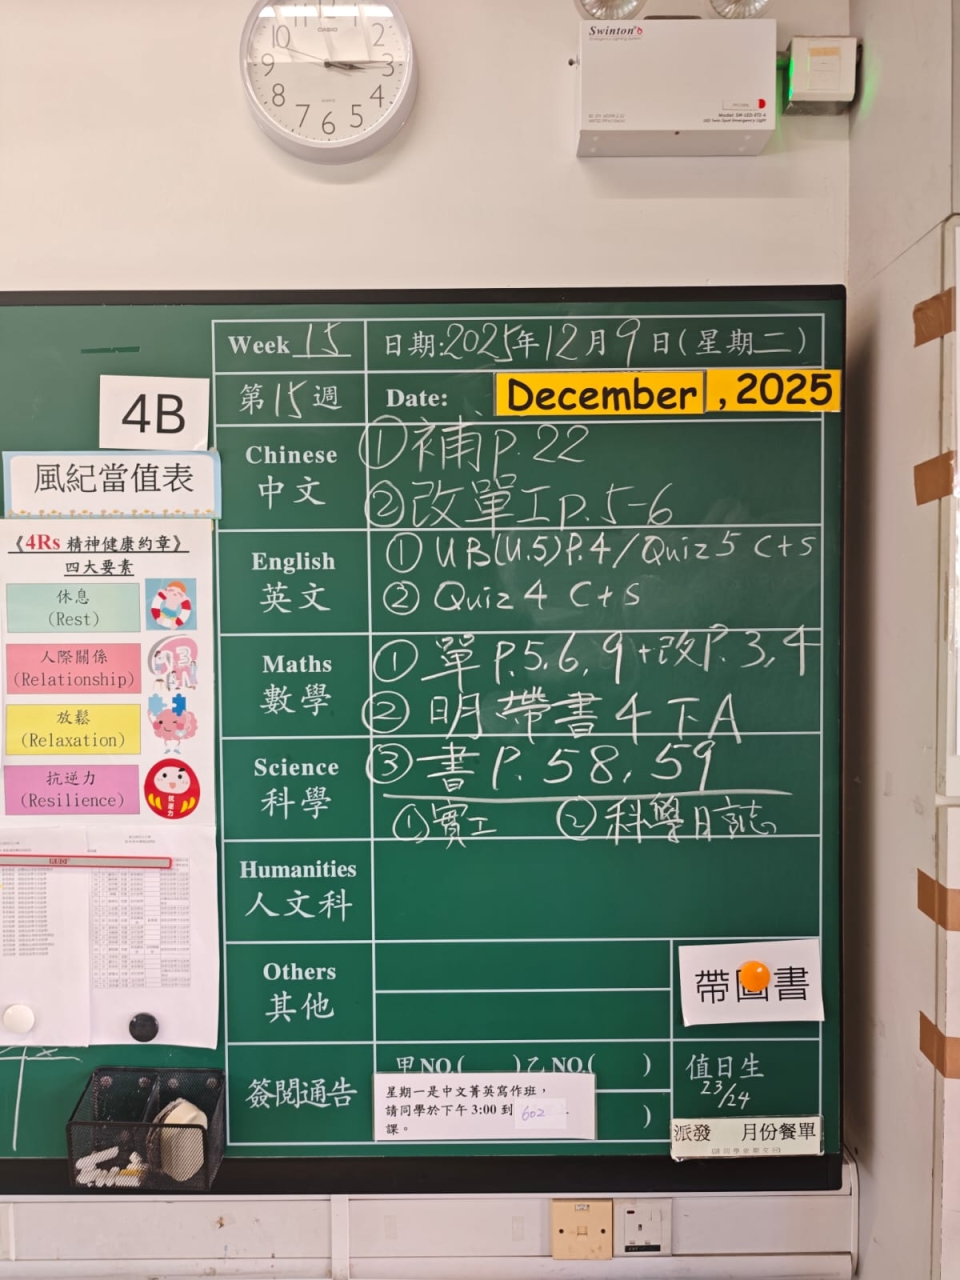 CASIO
11 12 1 2 3 4 5 6 7 8 9 10
Swinton
Week 15
日期:2025年12月9日(星期二)
第15週
Date: December , 2025
4B
風紀當值表
《4Rs 精神健康約章》
四大要素
休息
(Rest)
人際關係
(Relationship)
放鬆
(Relaxation)
抗逆力
(Resilience)
抗逆力
Chinese
中文
①補p.22
②改單工p.5-6
English
英文
① UB(U.5)P.4/Quiz 5 C+S
② Quiz 4 C+S
Maths
數學
① 單P.5,6,9+改P.3,4
② 明帶書4下A
Science
科學
③ 書P.58,59
①實工 ②科學日誌
Humanities
人文科
Others
其他
帶圖書
簽閱通告
甲NO.( )乙NO.( )
星期一是中文菁英寫作班,
請同學於下午 3:00 到 602
課。
)
值日生
23/24
派發 月份餐單